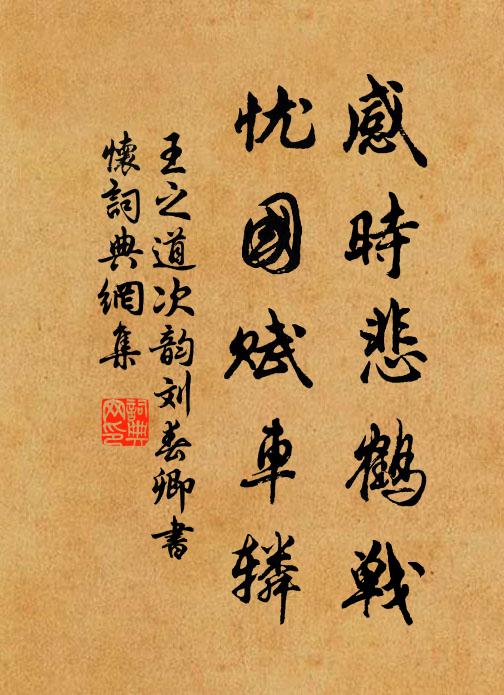 感時悲鶴戰
忧國賦車轔
王之道次韵刘春卿書
懷詞典網集
詞典
网印